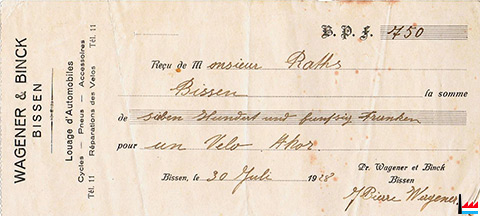 WAGENER & BINCK
BISSEN
Louage d'Automobiles
Cycles — Pneus — Accessoires
Tél. 11 Réparations des Velos Tél. 11
B. P. F. 750
Reçu de Monsieur Raths
Bissen la somme
de sieben Hundert und funfzig Franken
pour un Velo Akor
Bissen, le 30 Juli 1928
Pr. Wagener et Binck
Bissen
Pierre Wagener